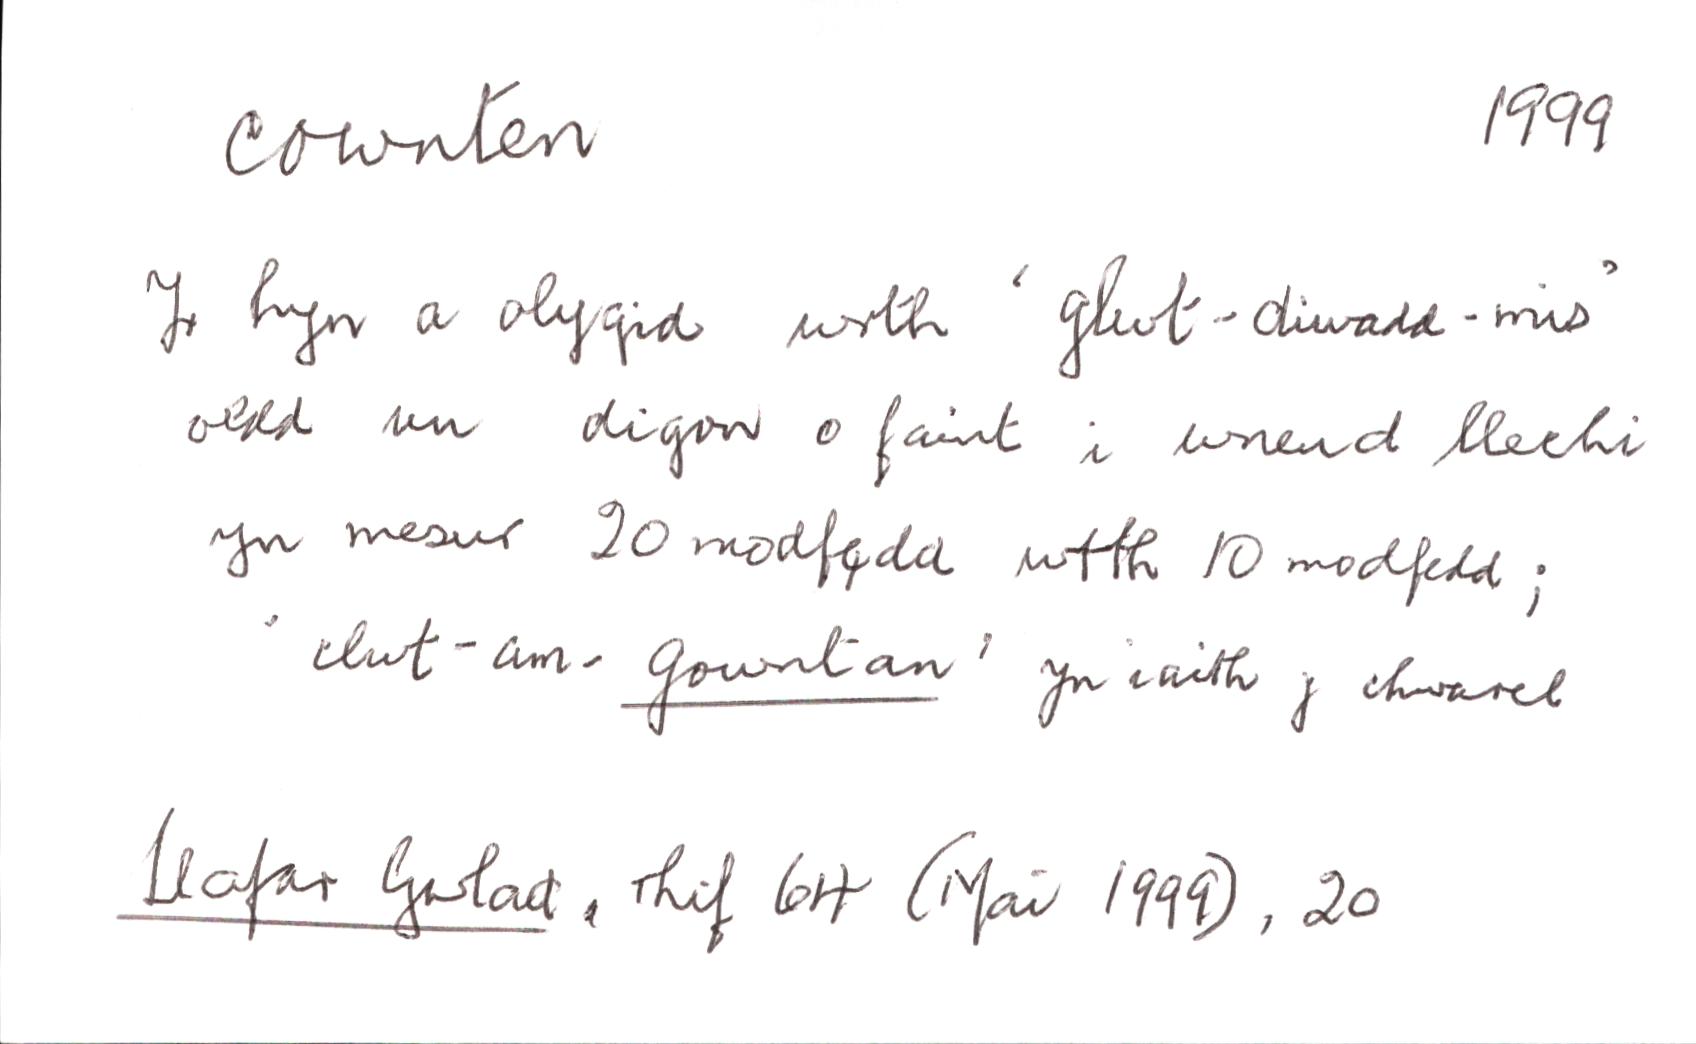 cownten 1999
Yr hyn a olygid wrth 'glwt-diwadd-mis'
oedd un digon o faint i wneud llechi
yn mesur 20 modfedd wrth 10 modfedd;
'clwt-am-gowntan' yn iaith y chwarel
Llafar Gwlad, rhif 64 (Mai 1999), 20